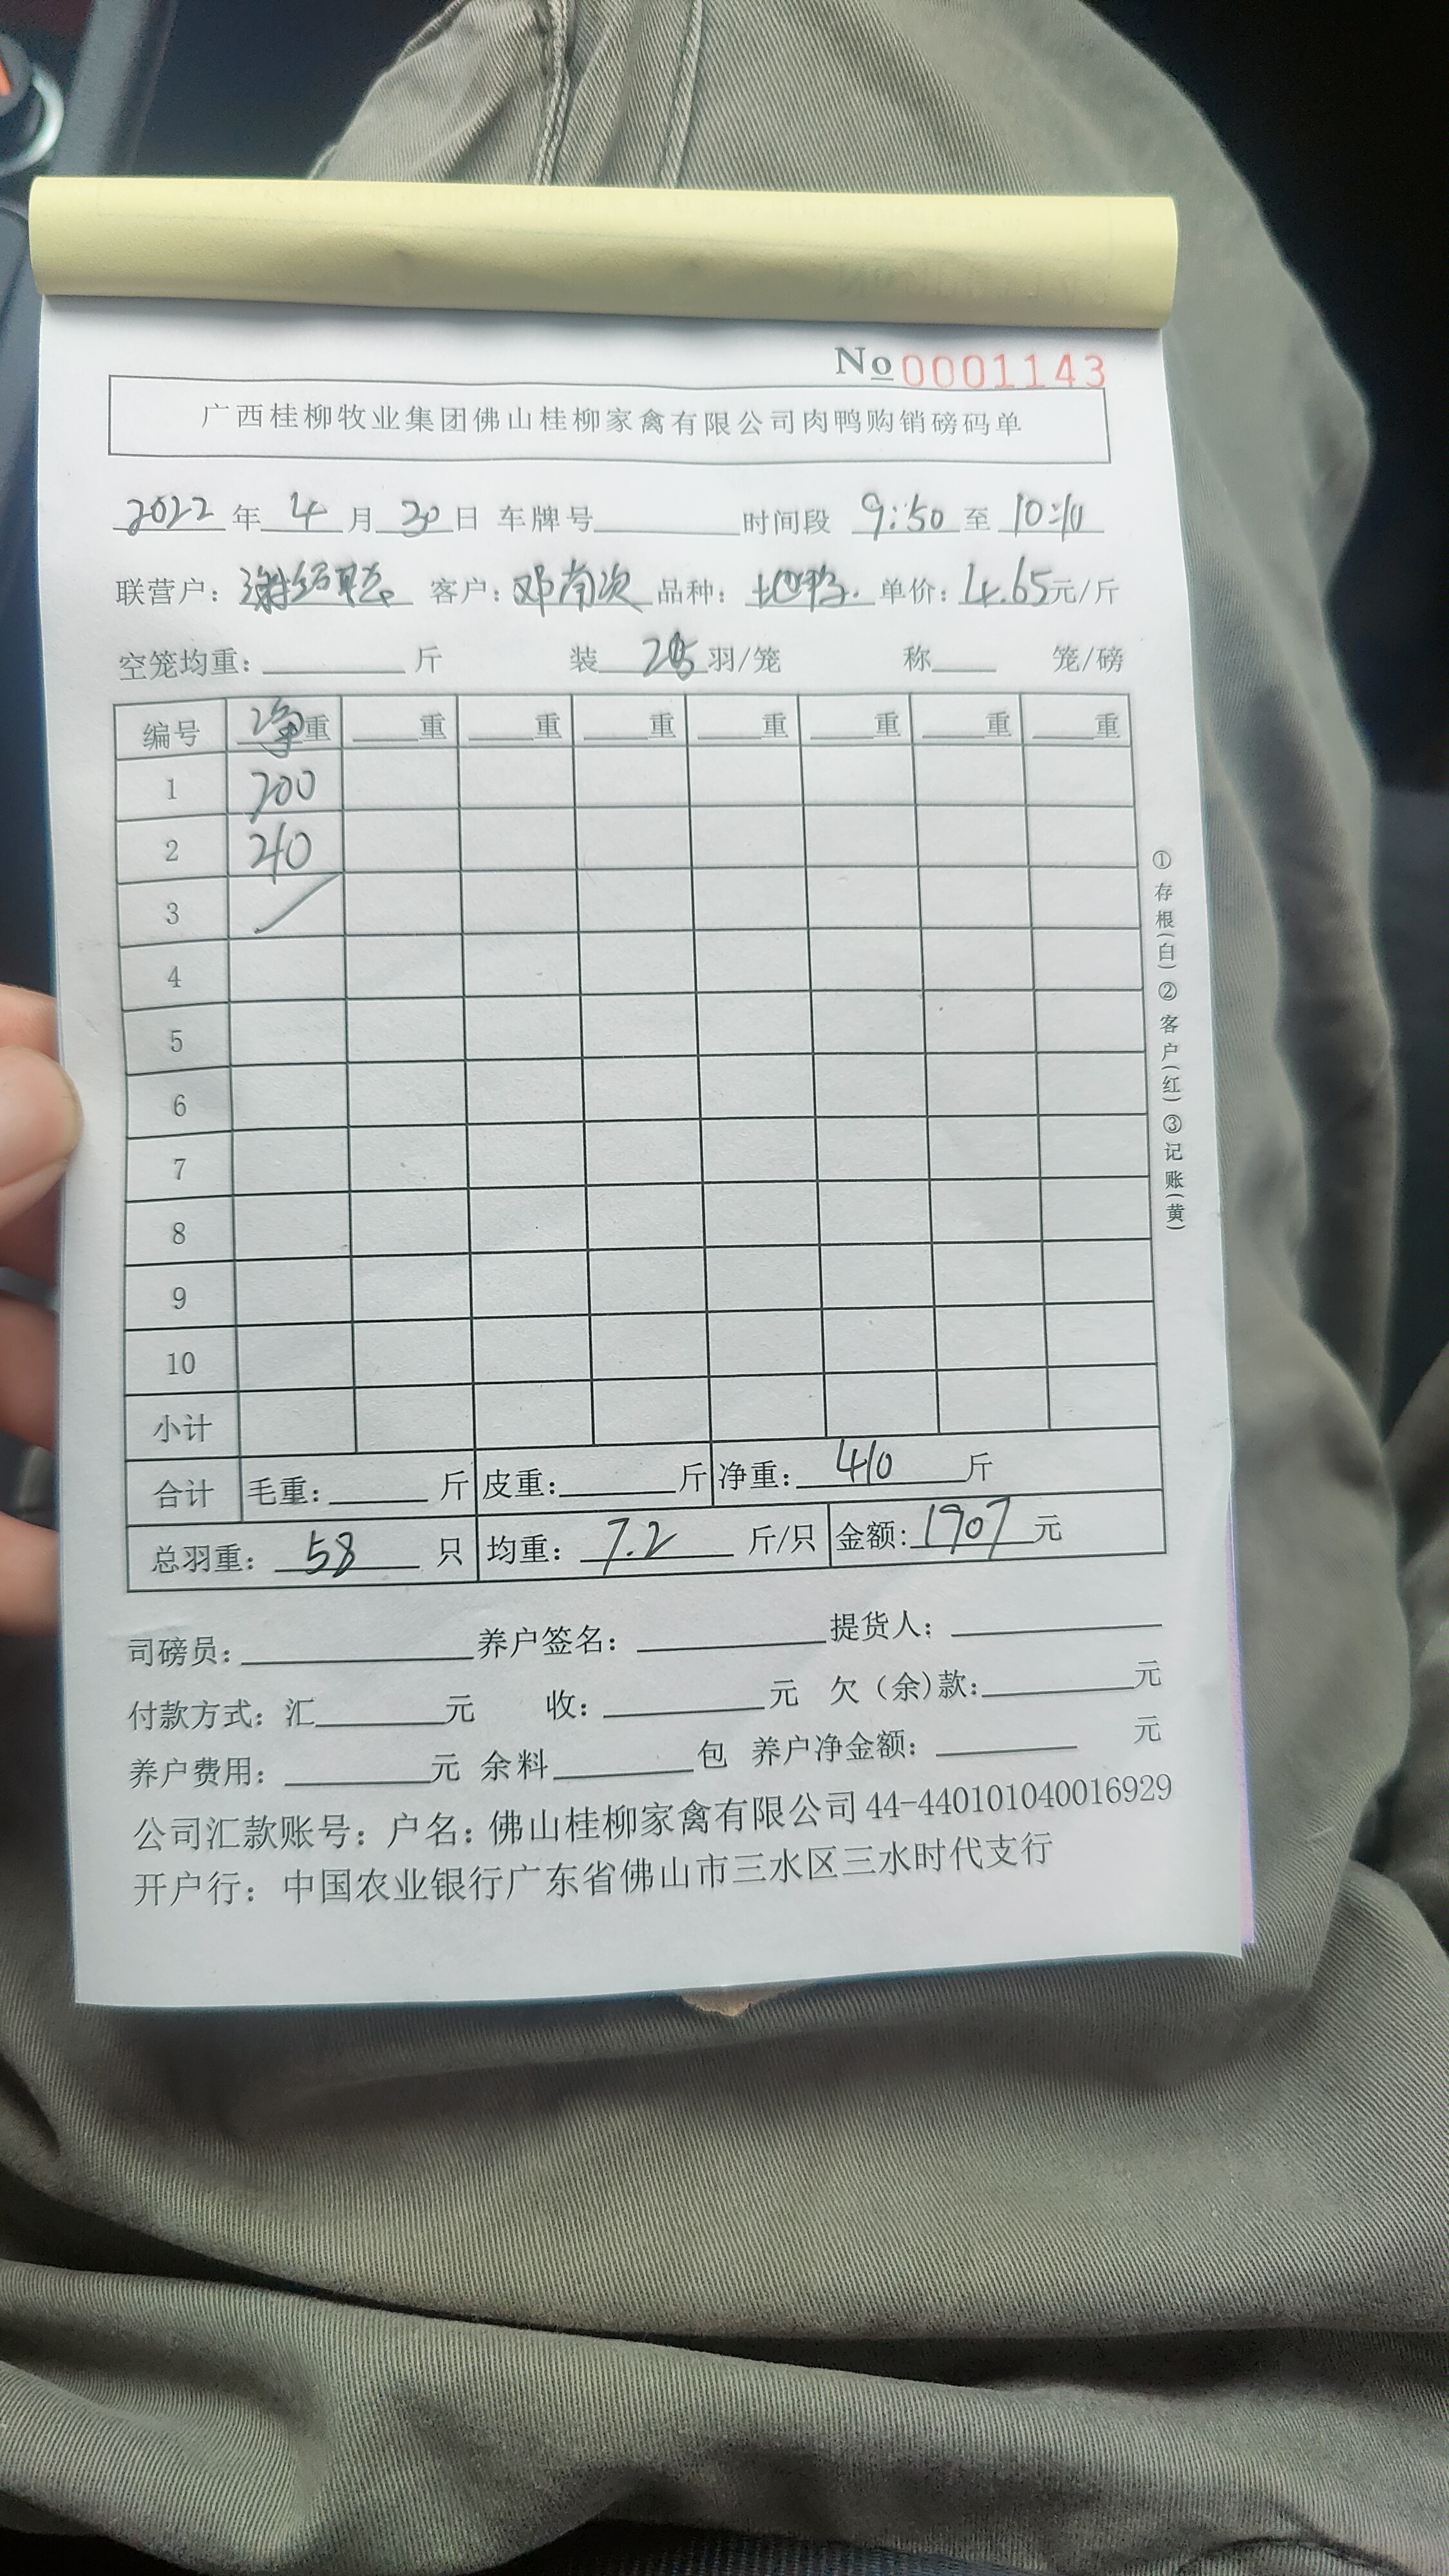 No 0001143
广西桂柳牧业集团佛山桂柳家禽有限公司肉鸭购销磅码单
2022年 4月 20日 车牌号 时间段 9:50 至 10:10
联营户: 客户: 邓南次 品种: 单价: 4.65元/斤
空笼均重: 斤 装 羽/笼 称 笼/磅
编号 净重 重 重 重 重 重 重 重
1 200
2 210
3
4
5
6
7
8
9
10
小计
合计 毛重: 斤 皮重: 斤 净重: 410 斤
总羽重: 58 只 均重: 7.2 斤/只 金额: 1907 元
司磅员: 养户签名: 提货人:
付款方式: 汇 元 收: 元 欠(余)款: 元
养户费用: 元 余料 包 养户净金额: 元
公司汇款账号: 户名: 佛山桂柳家禽有限公司 44-440101040016929
开户行: 中国农业银行广东省佛山市三水区三水时代支行
①存根(白)②客户(红)③记账(黄)